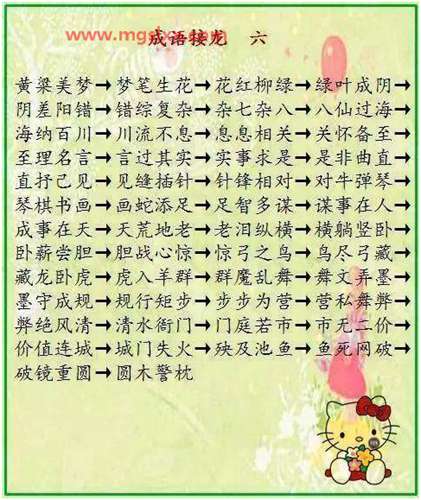 www.mgs
成语接龙 六
黄粱美梦→梦笔生花→花红柳绿→绿叶成阴→
阴差阳错→错综复杂→杂七杂八→八仙过海→
海纳百川→川流不息→息息相关→关怀备至→
至理名言→言过其实→实事求是→是非曲直→
直抒己见→见缝插针→针锋相对→对牛弹琴→
琴棋书画→画蛇添足→足智多谋→谋事在人→
成事在天→天荒地老→老泪纵横→横躺竖卧→
卧薪尝胆→胆战心惊→惊弓之鸟→鸟尽弓藏→
藏龙卧虎→虎入羊群→群魔乱舞→舞文弄墨→
墨守成规→规行矩步→步步为营→营私舞弊→
弊绝风清→清水衙门→门庭若市→市无二价→
价值连城→城门失火→殃及池鱼→鱼死网破→
破镜重圆→圆木警枕